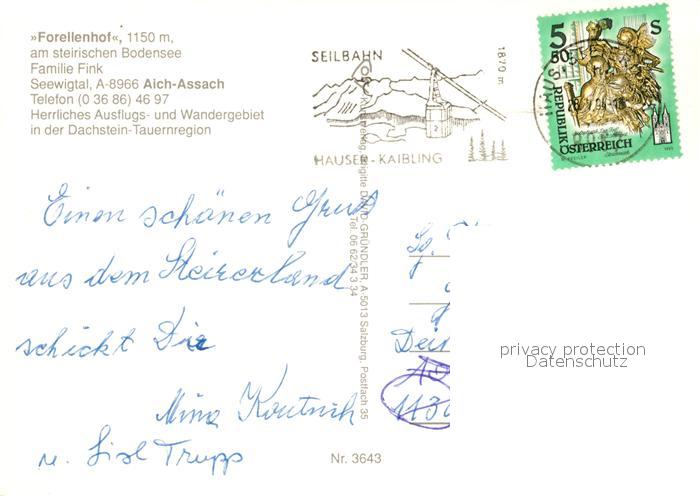 »Forellenhof«, 1150 m,
am steirischen Bodensee
Familie Fink
Seewigtal, A-8966 Aich-Assach
Telefon (0 36 86) 46 97
Herrliches Ausflugs- und Wandergebiet
in der Dachstein-Tauernregion
SEILBAHN
1870 m
HAUSER-KAIBLING
5 50 S
REPUBLIK
ÖSTERREICH
Einen schönen Gruß
aus dem Steirerland
schickt Die
Mina
u. Lisl Trupp
GRÜNDLER, A-5013 Salzburg, Postfach 35
Tel. 06 62/34 3 34
privacy protection
Datenschutz
Nr. 3643